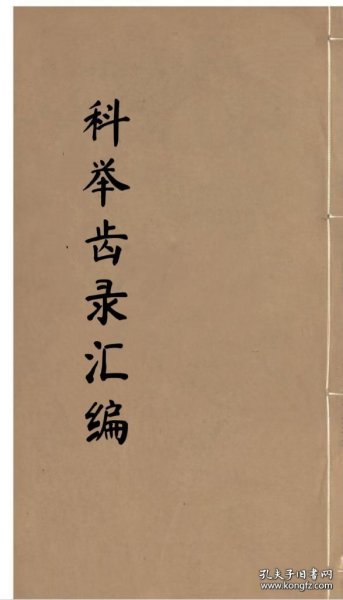 科举齿录汇编
孔夫子旧书网